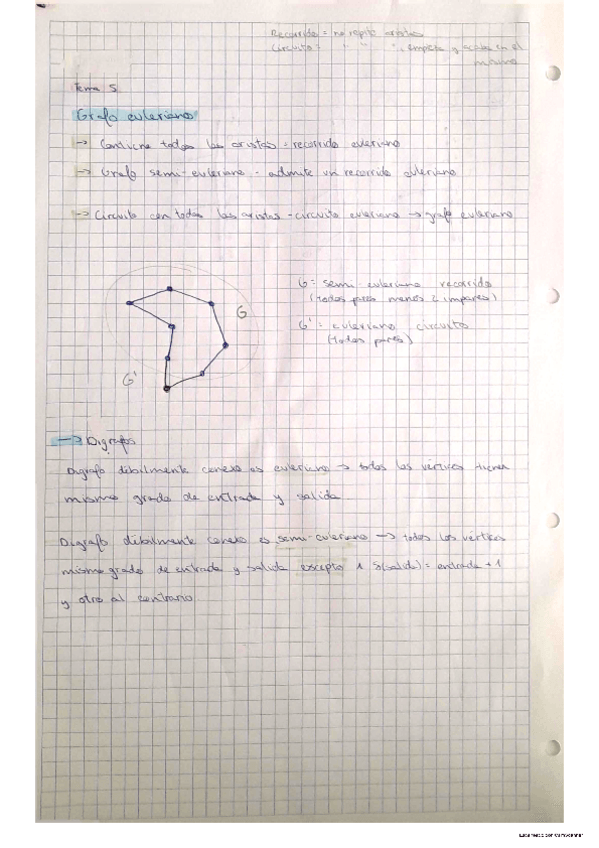 Recorrido = no repite aristas
Circuito = " " ", empieza y acaba en el
mismo
Tema 5
Grafo euleriano
→ Contiene todas las aristas = recorrido euleriano
→ Grafo semi-euleriano = admite un recorrido euleriano
→ Circuito con todas las aristas = circuito euleriano → grafo euleriano
G = semi-euleriano recorrido
(todos pares menos 2 impares)
G
G' = euleriano circuito
(todos pares)
G'
→ Digrafos
Digrafo débilmente conexo es euleriano → todos los vértices tienen
mismo grado de entrada y salida
Digrafo débilmente conexo es semi-euleriano → todos los vértices
mismo grado de entrada y salida excepto 1 S(salida) = entrada + 1
y otro al contrario